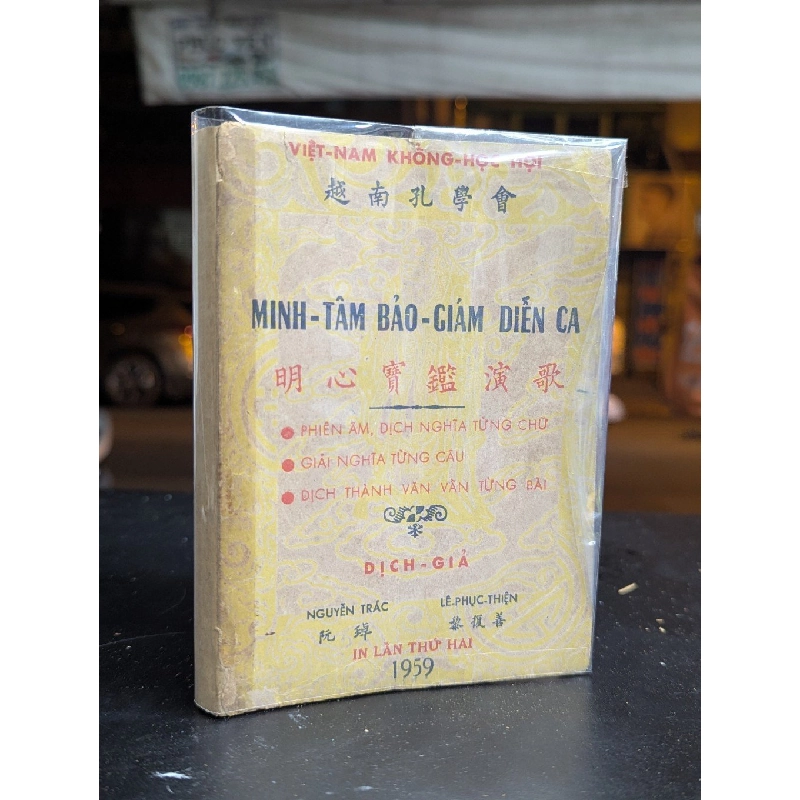 VIỆT-NAM KHỔNG-HỌC HỘI
越南孔學會
MINH-TÂM BẢO-GIÁM DIỄN CA
明心寶鑑演歌
PHIÊN ÂM, DỊCH NGHĨA TỪNG CHỮ
GIẢI NGHĨA TỪNG CÂU
DỊCH THÀNH VĂN VẦN TỪNG BÀI
DỊCH-GIẢ
NGUYỄN TRÁC LÊ-PHỤC-THIỆN
阮 黎 善
IN LẦN THỨ HAI
1959